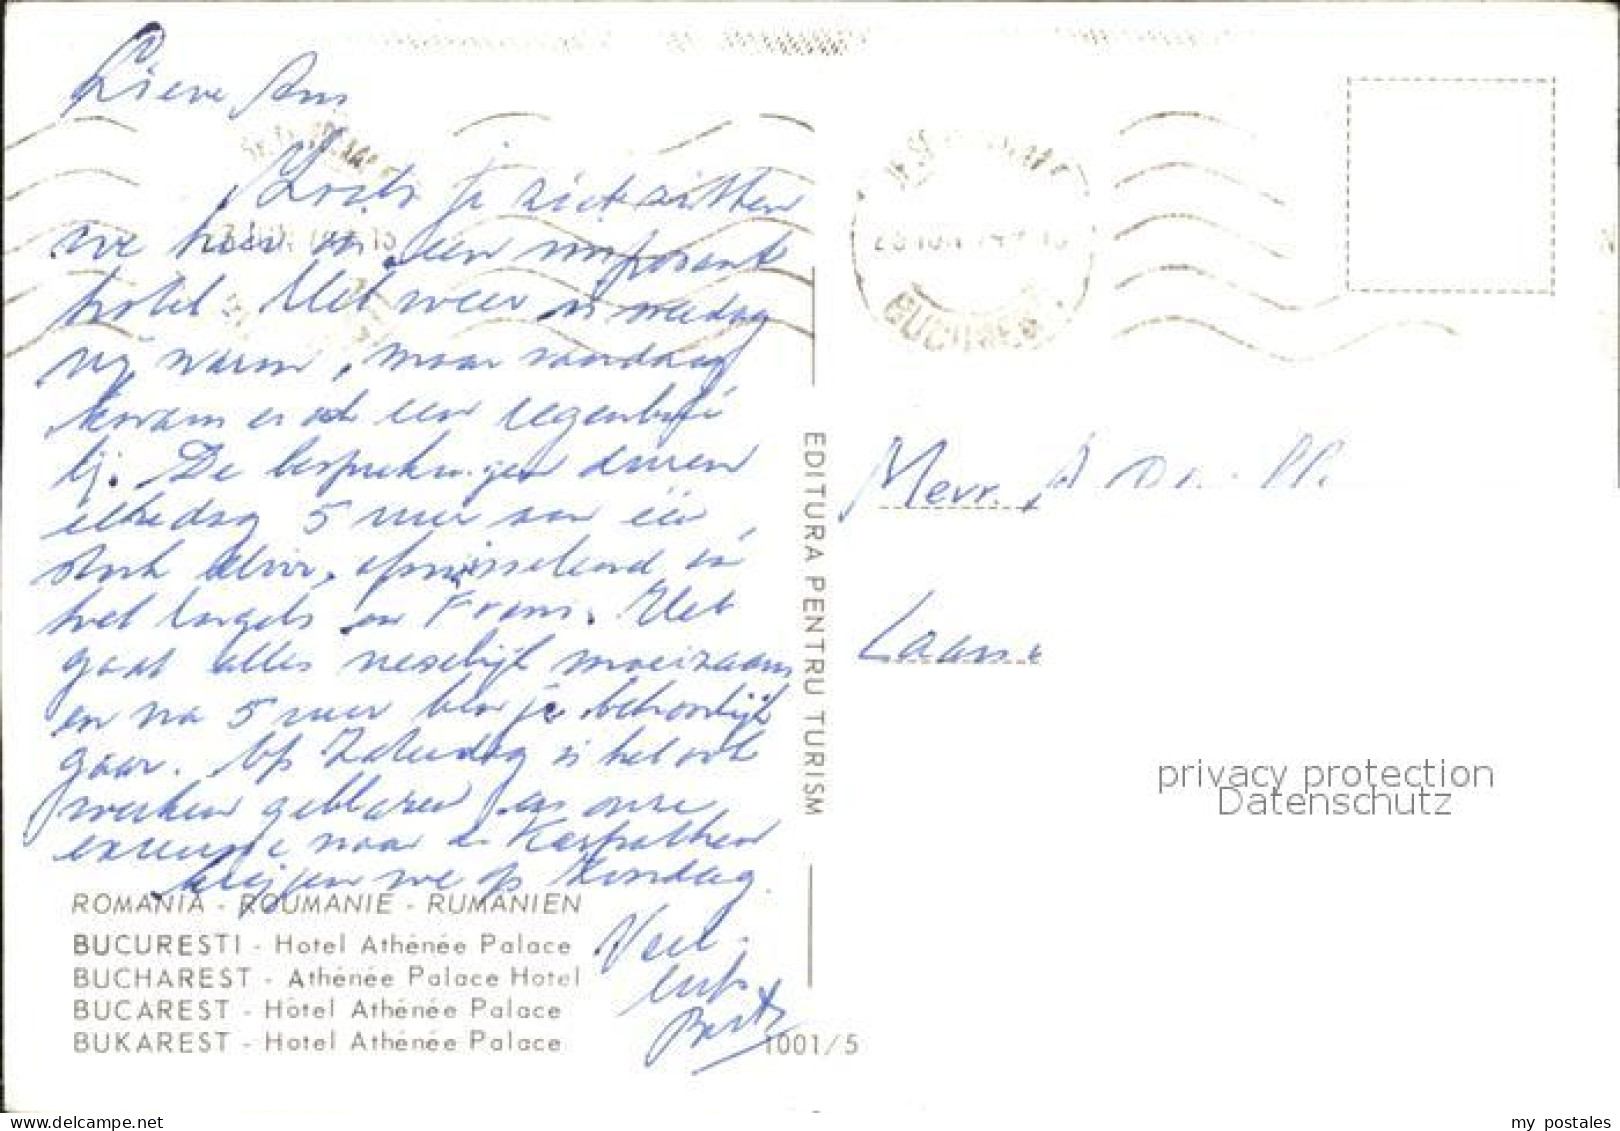 Lieve Ans
Zoals je ziet zitten
we hier in een imposant
hotel. Het weer is vreedag
vrij warm, maar vandaag
kwam er ook een regenbui
bij. De besprekingen duren
elke dag 5 uur aan één
stuk door, afwisselend in
het Engels en Frans. Het
gaat alles neselijk moeizaam
en na 5 uur ben je behoorlijk
gaar. Op Zaterdag is het ook
werken geblazen en onze
excursie naar de Karpathen
krijgen we op Zondag.
Veel
liefs
Bert
ROMANIA - ROUMANIE - RUMANIEN
BUCURESTI - Hotel Athénée Palace
BUCHAREST - Athénée Palace Hotel
BUCAREST - Hôtel Athénée Palace
BUKAREST - Hotel Athénée Palace
1001/5
EDITURA PENTRU TURISM
BUCUREȘTI
Mevr. A
Laan
privacy protection
Datenschutz
my postales